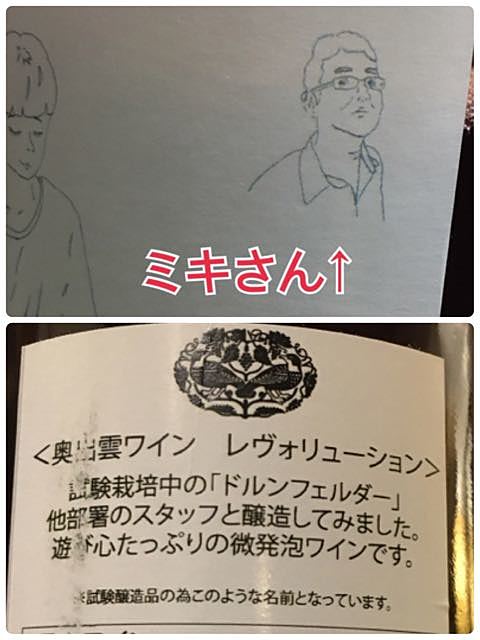 ミキさん↑
<奥出雲ワイン レヴォリューション>
試験栽培中の「ドルンフェルダー」
他部署のスタッフと醸造してみました。
遊び心たっぷりの微発泡ワインです。
※試験醸造品の為このような名前となっています。